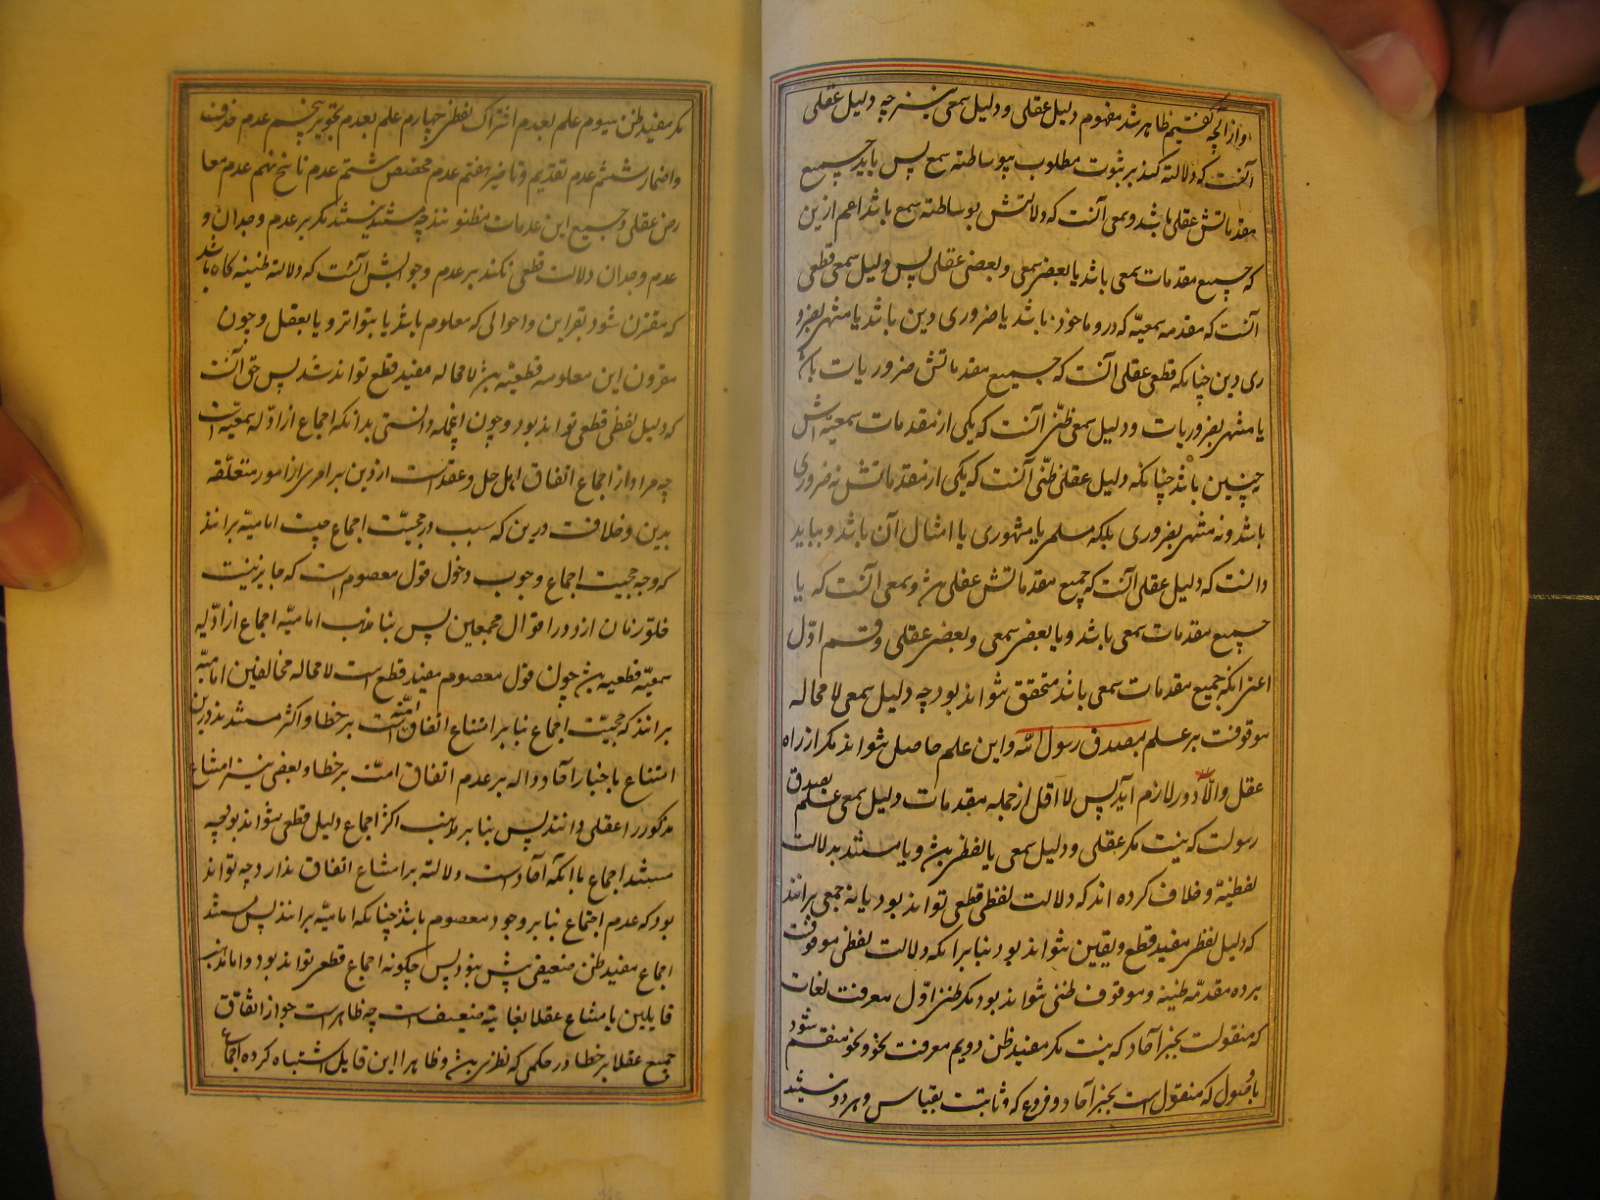 و از آنچه گفتیم ظاهر شد مفهوم دلیل عقلی و دلیل سمعی نیز چه دلیل عقلی
آنست که دلالت کند بر ثبوت مطلوب بی وساطته سمع پس باید جمیع
مقدماتش عقلی باشد و سمعی آنست که دلالتش بوساطته سمع باشد اعم ازین
که جمیع مقدمات سمعی باشد یا بعضی سمعی و بعضی عقلی پس دلیل سمعی قطعی
آنست که مقدمه سمعیه که درو ماخوذ باشد یا ضروری دین باشد یا منتهی بضرو
ری دین چنانکه قطعی عقلی آنست که جمیع مقدماتش ضروریات باشد
یا منتهی بضروریات و دلیل سمعی ظنی آنست که یکی از مقدمات سمعیه اش
چنین باشد چنانکه دلیل عقلی ظنی آنست که یکی از مقدماتش نه ضروری
باشد و نه منتهی بضروری بلکه مسلم یا مشهوری یا امثال آن باشد و بباید
دانست که دلیل عقلی آنست که جمیع مقدماتش عقلی بود و سمعی آنست که یا
جمیع مقدمات سمعی باشد و یا بعضی سمعی و بعضی عقلی و قسم اول
اعنی آنکه جمیع مقدمات سمعی باشد متحقق نتواند بود چه دلیل سمعی لا محاله
موقوفست بر علم بصدق رسول الله و این علم حاصل نتواند مگر از راه
عقل و الّا دور لازم آید پس لا اقل از جمله مقدمات دلیل سمعی علم بصدق
رسولست که نیست مگر عقلی و دلیل سمعی یا لفظی بود و یا مستند بدلالت
لفظیه و خلاف کرده اند که دلالت لفظی قطعی تواند بود یا نه جمعی برانند
که دلیل لفظی مفید قطع و یقین نتواند بود بنا برانکه دلالت لفظی موقوفست
بر ده مقدمه ظنیه و موقوف ظنی نتواند بود مگر ظنی اول معرفت لغات
که منقولست بخبر آحاد که نیست مگر مفید ظن دویم معرفت نحو و نحو منقسم شود
باصول که منقول است بخبر آحاد و فروع که ثابتست بقیاس و هر دو نیستند
مگر مفید ظن سیوم علم بعدم اشتراک لفظی چهارم علم بعدم تجوز پنجم عدم حذف
و اضمار ششم عدم تقدیم و تاخیر هفتم عدم مخصص هشتم عدم ناسخ نهم عدم معا
رض عقلی و جمیع این عدمات مظنونند چه مستند نیستند مگر بر عدم وجدان و
عدم وجدان دلالت قطعی نکند بر عدم و جوابش آنست که دلالته ظنیه گاه باشد
که مقترن شود بقراین و احوالی که معلوم باشد یا بتواتر و یا بعقل و چون
مقرون این معلومه قطعیه بود لا محاله مفید قطع تواند شد پس حق آنست
که دلیل لفظی قطعی تواند بود و چون اینجمله دانستی بدانکه اجماع از ادله سمعیه است
چه مراد از اجماع اتفاق اهل حل و عقد است از دین بر امری از امور متعلقه
بدین و خلافست درین که سبب در حجیت اجماع چیست امامیه برانند
که وجه حجیت اجماع وجوب دخول قول معصوم است که جایز نیست
خلو زمان ازو در اقوال مجمعین پس بنا مذهب امامیه اجماع از ادله
سمعیه قطعیه بود چون قول معصوم مفید قطع است لا محاله مخالفین امامیه
برانند که حجیت اجماع بنا بر امتناع اتفاق امت است بر خطا و اکثر مستند در
امتناع باخبار آحاد داله بر عدم اتفاق امت بر خطا و بعضی نیز امتناع
مذکور را عقلی دانند پس بنا بر مذهب اکثر اجماع دلیل قطعی نتواند بود چه
مستند اجماع با آنکه آحاد است دلالته بر امتناع اتفاق ندارد چه تواند
بود که عدم اجتماع بنا بر وجود معصوم باشد چنانکه امامیه برانند پس مستند
اجماع مفید ظن ضعیفی بیش نبود پس چگونه اجماع قطعی تواند بود و اما مذهب
قایلین بامتناع عقلا بغایته ضعیفست چه ظاهر است جواز اتفاق
جمیع عقلا بر خطا در حکمی که نظری بود و ظاهرا این قایل اشتباه کرده اجماع